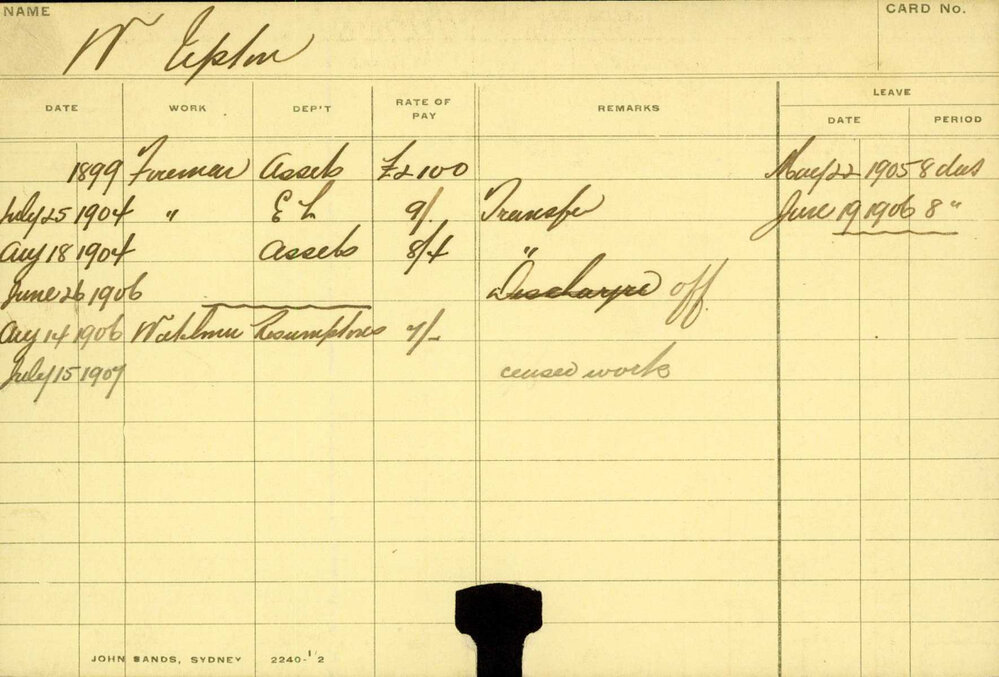 NAME
CARD No.
Wm Upton
DATE WORK DEP'T RATE OF PAY REMARKS LEAVE
DATE PERIOD
1899 Foreman Assets £2 10 0 May 22 1905 8 days
July 25 1904 " E L 9/- Transfer June 19 1906 8 "
Aug 18 1904 Assets 8/4 "
June 26 1906 Discharged off
Aug 14 1906 Watchman Resumptions 7/-
July 15 1907 ceased work
JOHN SANDS, SYDNEY 2240-1/2